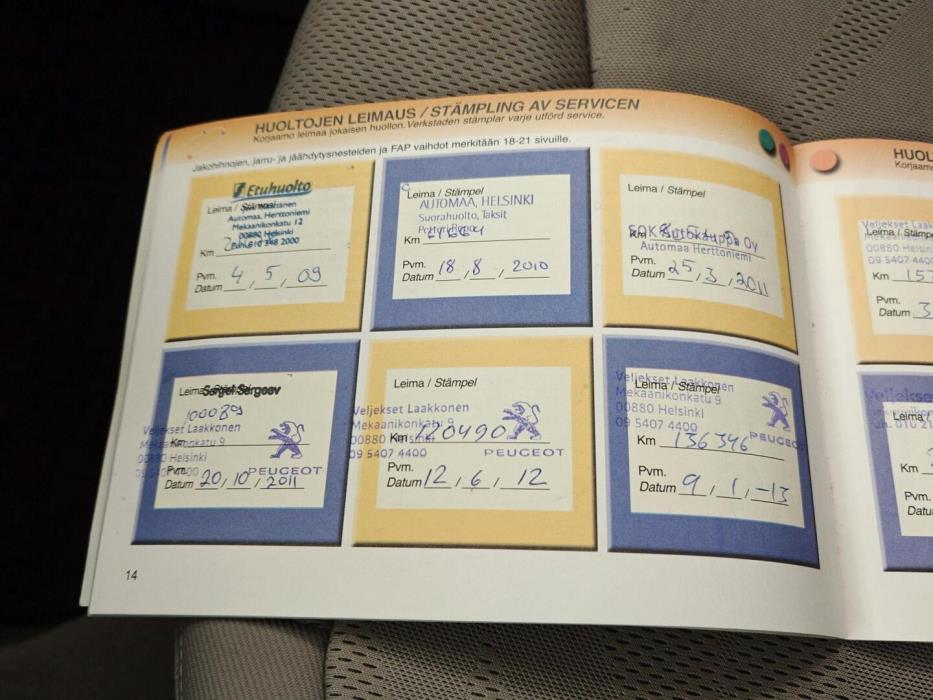 HUOLTOJEN LEIMAUS / STÄMPLING AV SERVICEN
Korjaamo leimaa jokaisen huollon. Verkstaden stämplar varje utförd service.
Jakohihnojen, jarru- ja jäähdytysnesteiden ja FAP vaihdot merkitään 18-21 sivuille.
Etuhuolto
Leima / Stämpel
Automaa, Herttoniemi
Mekaanikonkatu 12
00880 Helsinki
Puh. 010 348 2000
Km
Pvm.
Datum 4, 5, 09
Leima / Stämpel
AUTOMAA, HELSINKI
Suorahuolto, Taksit
Km
Pvm.
Datum 18, 8, 2010
Leima / Stämpel
SOK Autokauppa Oy
Automaa Herttoniemi
Km
Pvm.
Datum 25, 3, 2011
Leima / Stämpel
Sergei Sergeev
100089
Veljekset Laakkonen
Mekaanikonkatu 9
00880 Helsinki
Km
PEUGEOT
Pvm.
Datum 20, 10, 2011
Leima / Stämpel
Veljekset Laakkonen
Mekaanikonkatu 9
00880 Helsinki
09 5407 4400
Km
PEUGEOT
Pvm.
Datum 12, 6, 12
Leima / Stämpel
Veljekset Laakkonen
Mekaanikonkatu 9
00880 Helsinki
09 5407 4400
Km 136346
PEUGEOT
Pvm.
Datum 9, 1, -13
14
HUOL
Korjaamo
Veljekset Laak
Leima / Stämpe
Mekaanikonkat
00880 Helsin
09 5407 4400
Km 157
Pvm.
Datum 3
Veljekse
Leima /
Km
Pvm.
Datu